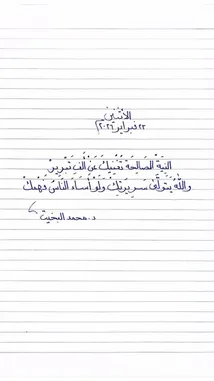 الاثنين
٢٣ فبراير ٢٠٢٦م
النِيَّةُ الصَالِحَةُ تُغْنِيكَ عَنْ أَلْفِ تَبْرِيرْ
واللهُ يَتَولَّى سَرِيرَتِكْ وَلَوْ أَسَاءَ النَّاسُ فَهْمِكْ
د. محمد البخيت